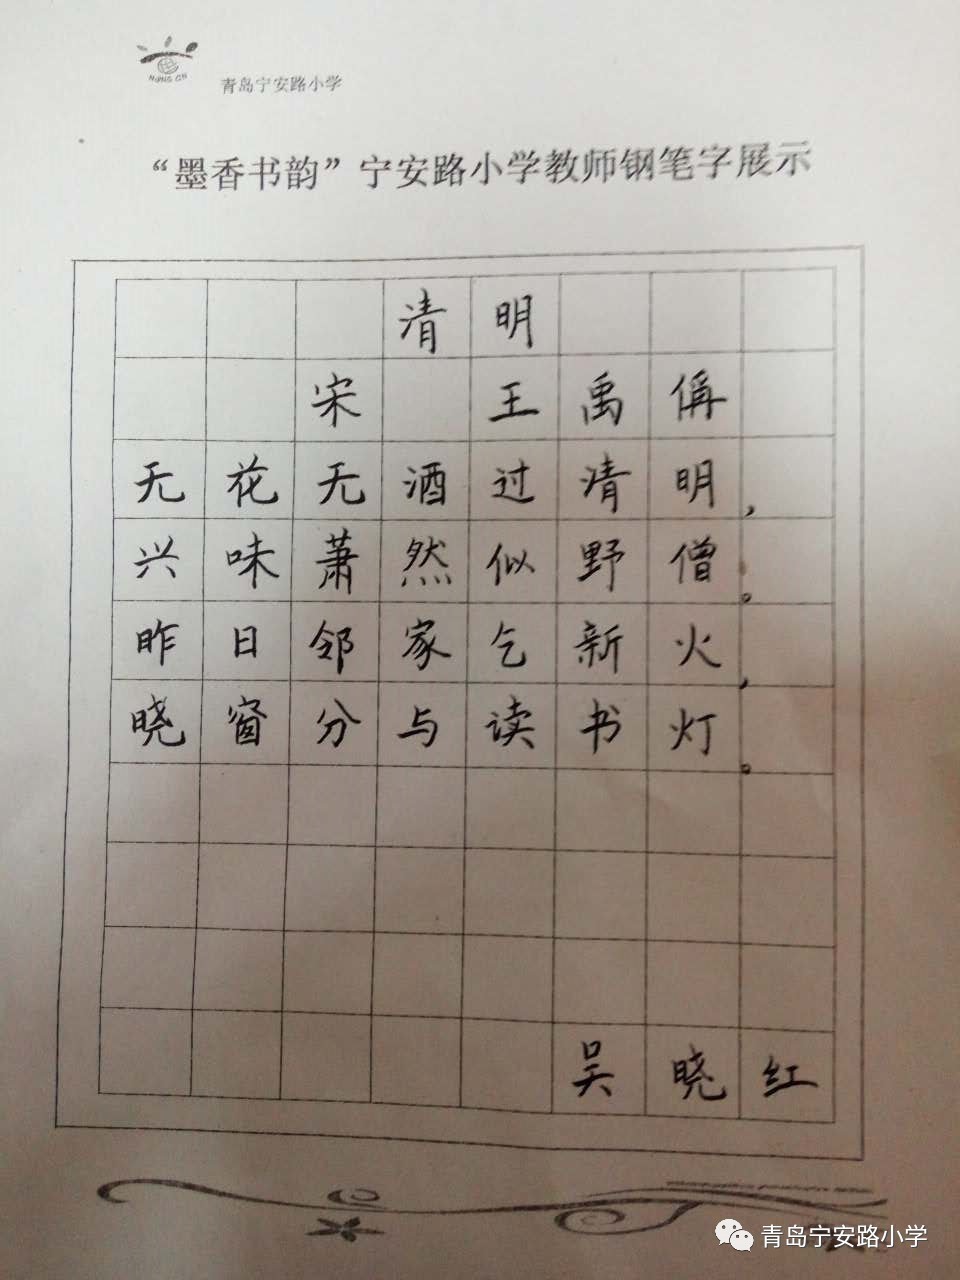 NING AN
青岛宁安路小学
“墨香书韵”宁安路小学教师钢笔字展示
清明
宋 王禹偁
无花无酒过清明，
兴味萧然似野僧。
昨日邻家乞新火，
晓窗分与读书灯。
吴晓红
青岛宁安路小学